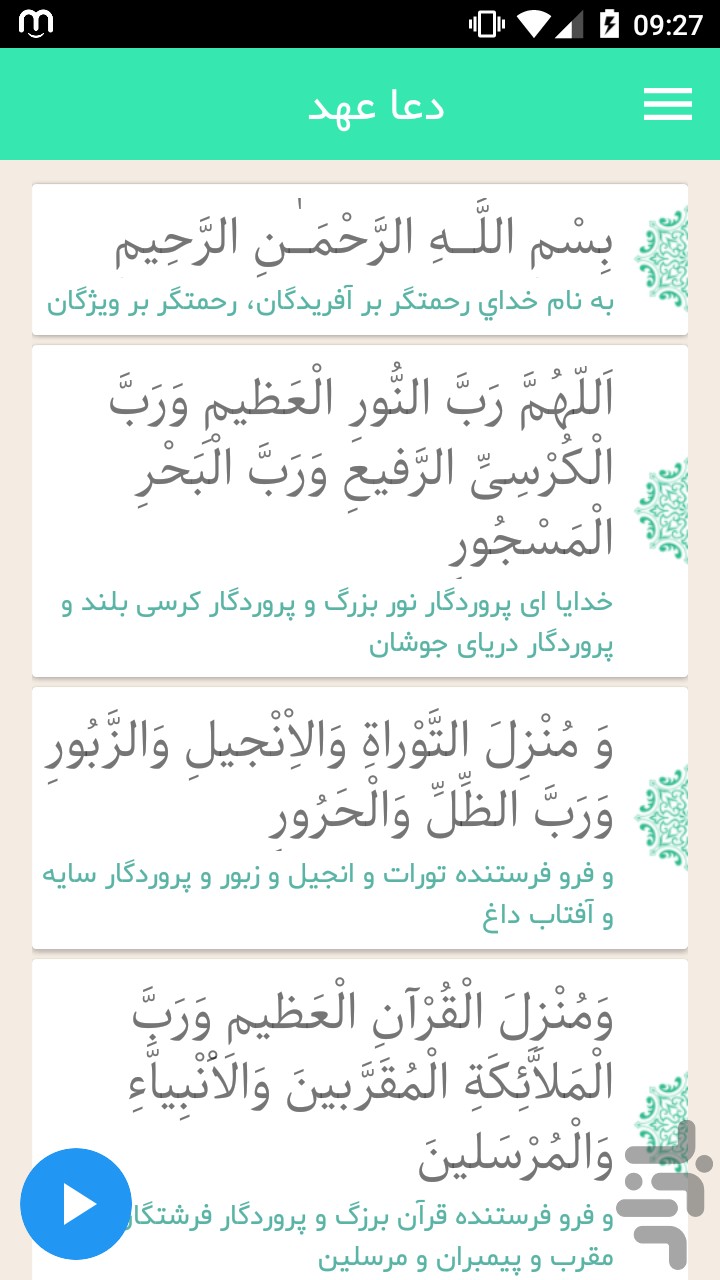 09:27
دعا عهد
بِسْمِ اللَّـهِ الرَّحْمَـٰنِ الرَّحِيمِ
به نام خداي رحمتگر بر آفریدگان، رحمتگر بر ویژگان
اَللّهُمَّ رَبَّ النُّورِ الْعَظيمِ وَرَبَّ
الْكُرْسِىِّ الرَّفيعِ وَرَبَّ الْبَحْرِ
الْمَسْجُورِ
خدایا ای پروردگار نور بزرگ و پروردگار کرسی بلند و
پروردگار دریای جوشان
وَ مُنْزِلَ التَّوْراةِ وَالاِْنْجيلِ وَالزَّبُورِ
وَرَبَّ الظِّلِّ وَالْحَرُورِ
و فرو فرستنده تورات و انجیل و زبور و پروردگار سایه
و آفتاب داغ
وَمُنْزِلَ الْقُرْآنِ الْعَظيمِ وَرَبَّ
الْمَلاَّئِكَةِ الْمُقَرَّبينَ وَالاَْنْبِياَّءِ
وَالْمُرْسَلينَ
و فرو فرستنده قرآن برزگ و پروردگار فرشتگان
مقرب و پیمبران و مرسلین